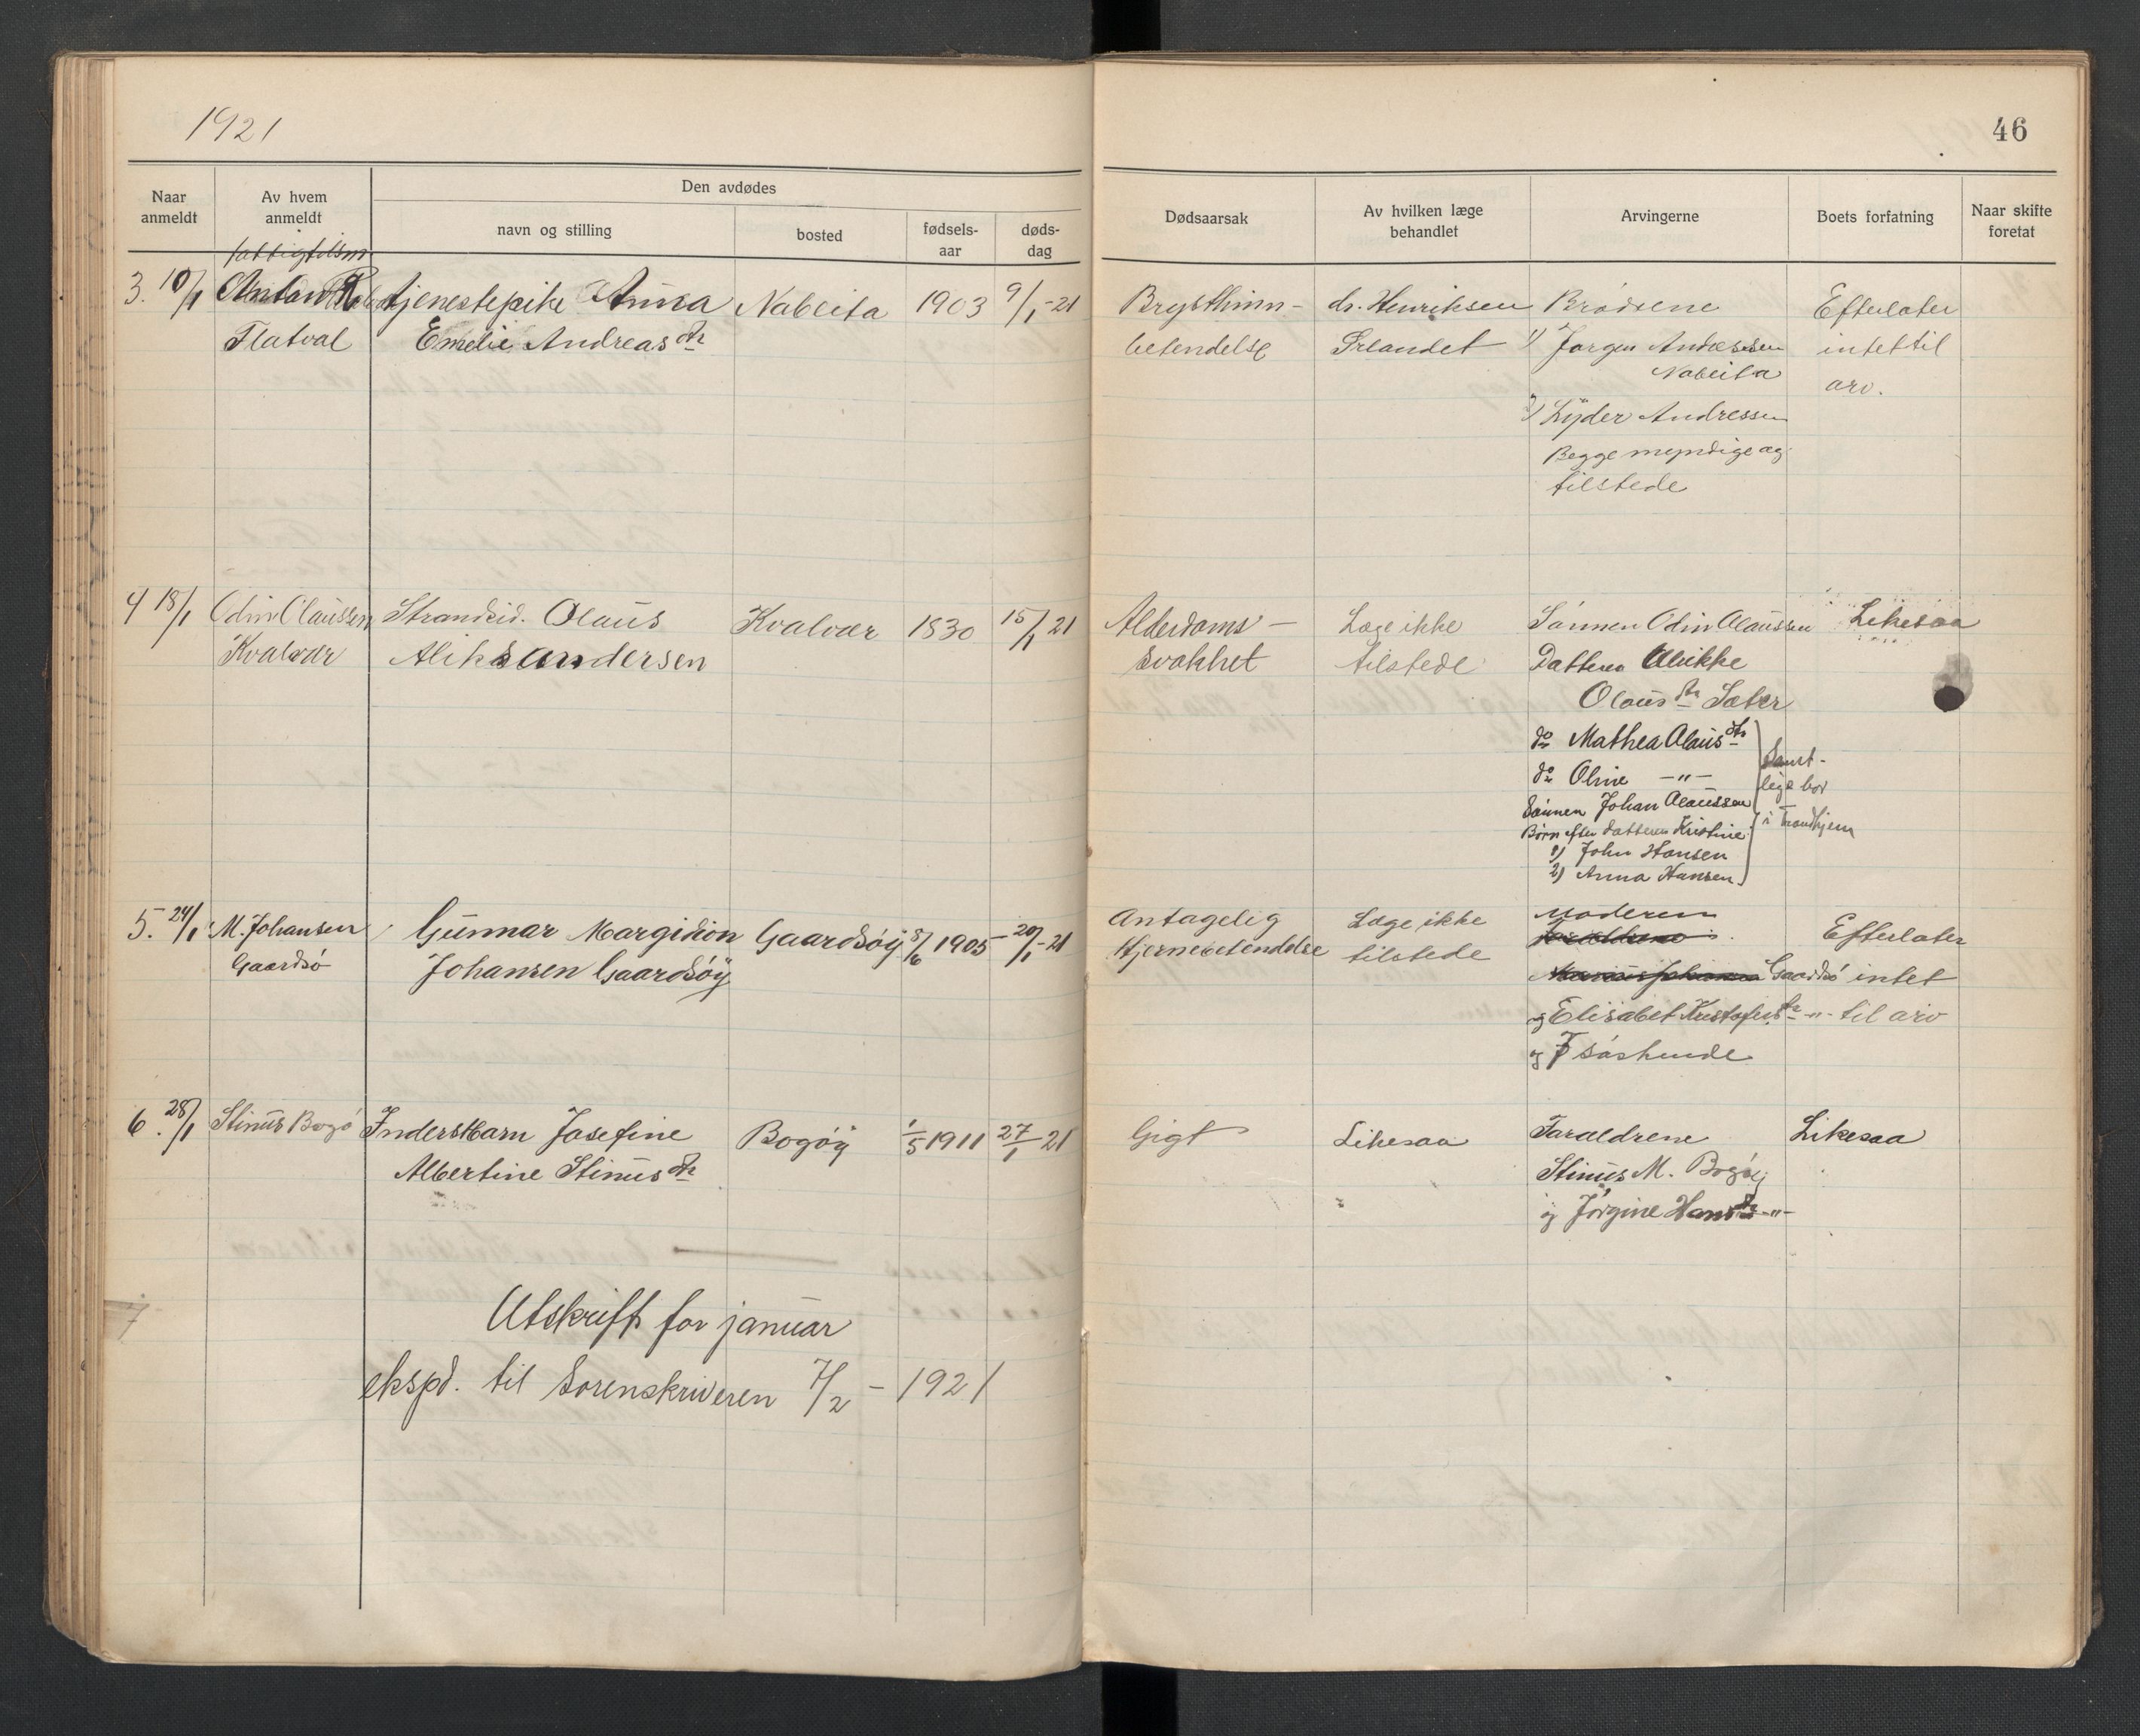 1921
46
Naar anmeldt
Av hvem anmeldt
Den avdødes
navn og stilling
bosted
fødsels-aar
døds-dag
Dødsaarsak
Av hvilken læge behandlet
Arvingerne
Boets forfatning
Naar skifte foretat
3. 10/1
fattigfolsm
Anton
Flatval
tjenestepike Anna
Emelie Andreas dtr
Nabeita
1903
9/1-21
Brysthinn-
betendelse
dr. Henriksen
Ørlandet
Brødrene
1) Jørgen Andressen
Nabeita
2) Lyder Andressen
Begge myndige og
tilstede
Efterlater
intet til
arv.
4 18/1
Odin Olaussen
Kvalvær
Strandsid. Olaus
Aliksandersen
Kvalvær
1830
15/1 21
Alderdoms-
svakhet
Læge ikke
tilstede
Sønnen Odin Olaussen
Datteren Ulrikke
Olaus dtr Sæter
do Mathea Olaus dtr
do Oline -"-
Sønnen Johan Olaussen
Børn efter datteren Kristine
1) John Hansen
2) Anna Hansen
Samt-
lige bor
i Trondhjem
Likesaa
5. 24/1
M. Johansen
Gaardsø
Gunnar Margido̅n
Johansen Gaardsøy
Gaardsøy
8/6 1905
20/1-21
Antagelig
Hjernebetendelse
Læge ikke
tilstede
Moderen
Forældrene
Marius Johansen Gaardsø
og Elisabet Kristofers dtr -"-
og 7 søskende
Efterlater
intet
til arv
6. 28/1
Stinus Bogø
Inderstbarn Josefine
Albertine Stinus dtr
Bogøy
1/5 1911
27/1 21
Gigt
Likesaa
Foraldrene
Stinus M. Bogøy
og Jørgine Hans dtr -"-
Likesaa
7
Utskrift for januar
ekspd. til Sorenskriveren 7/2 - 1921